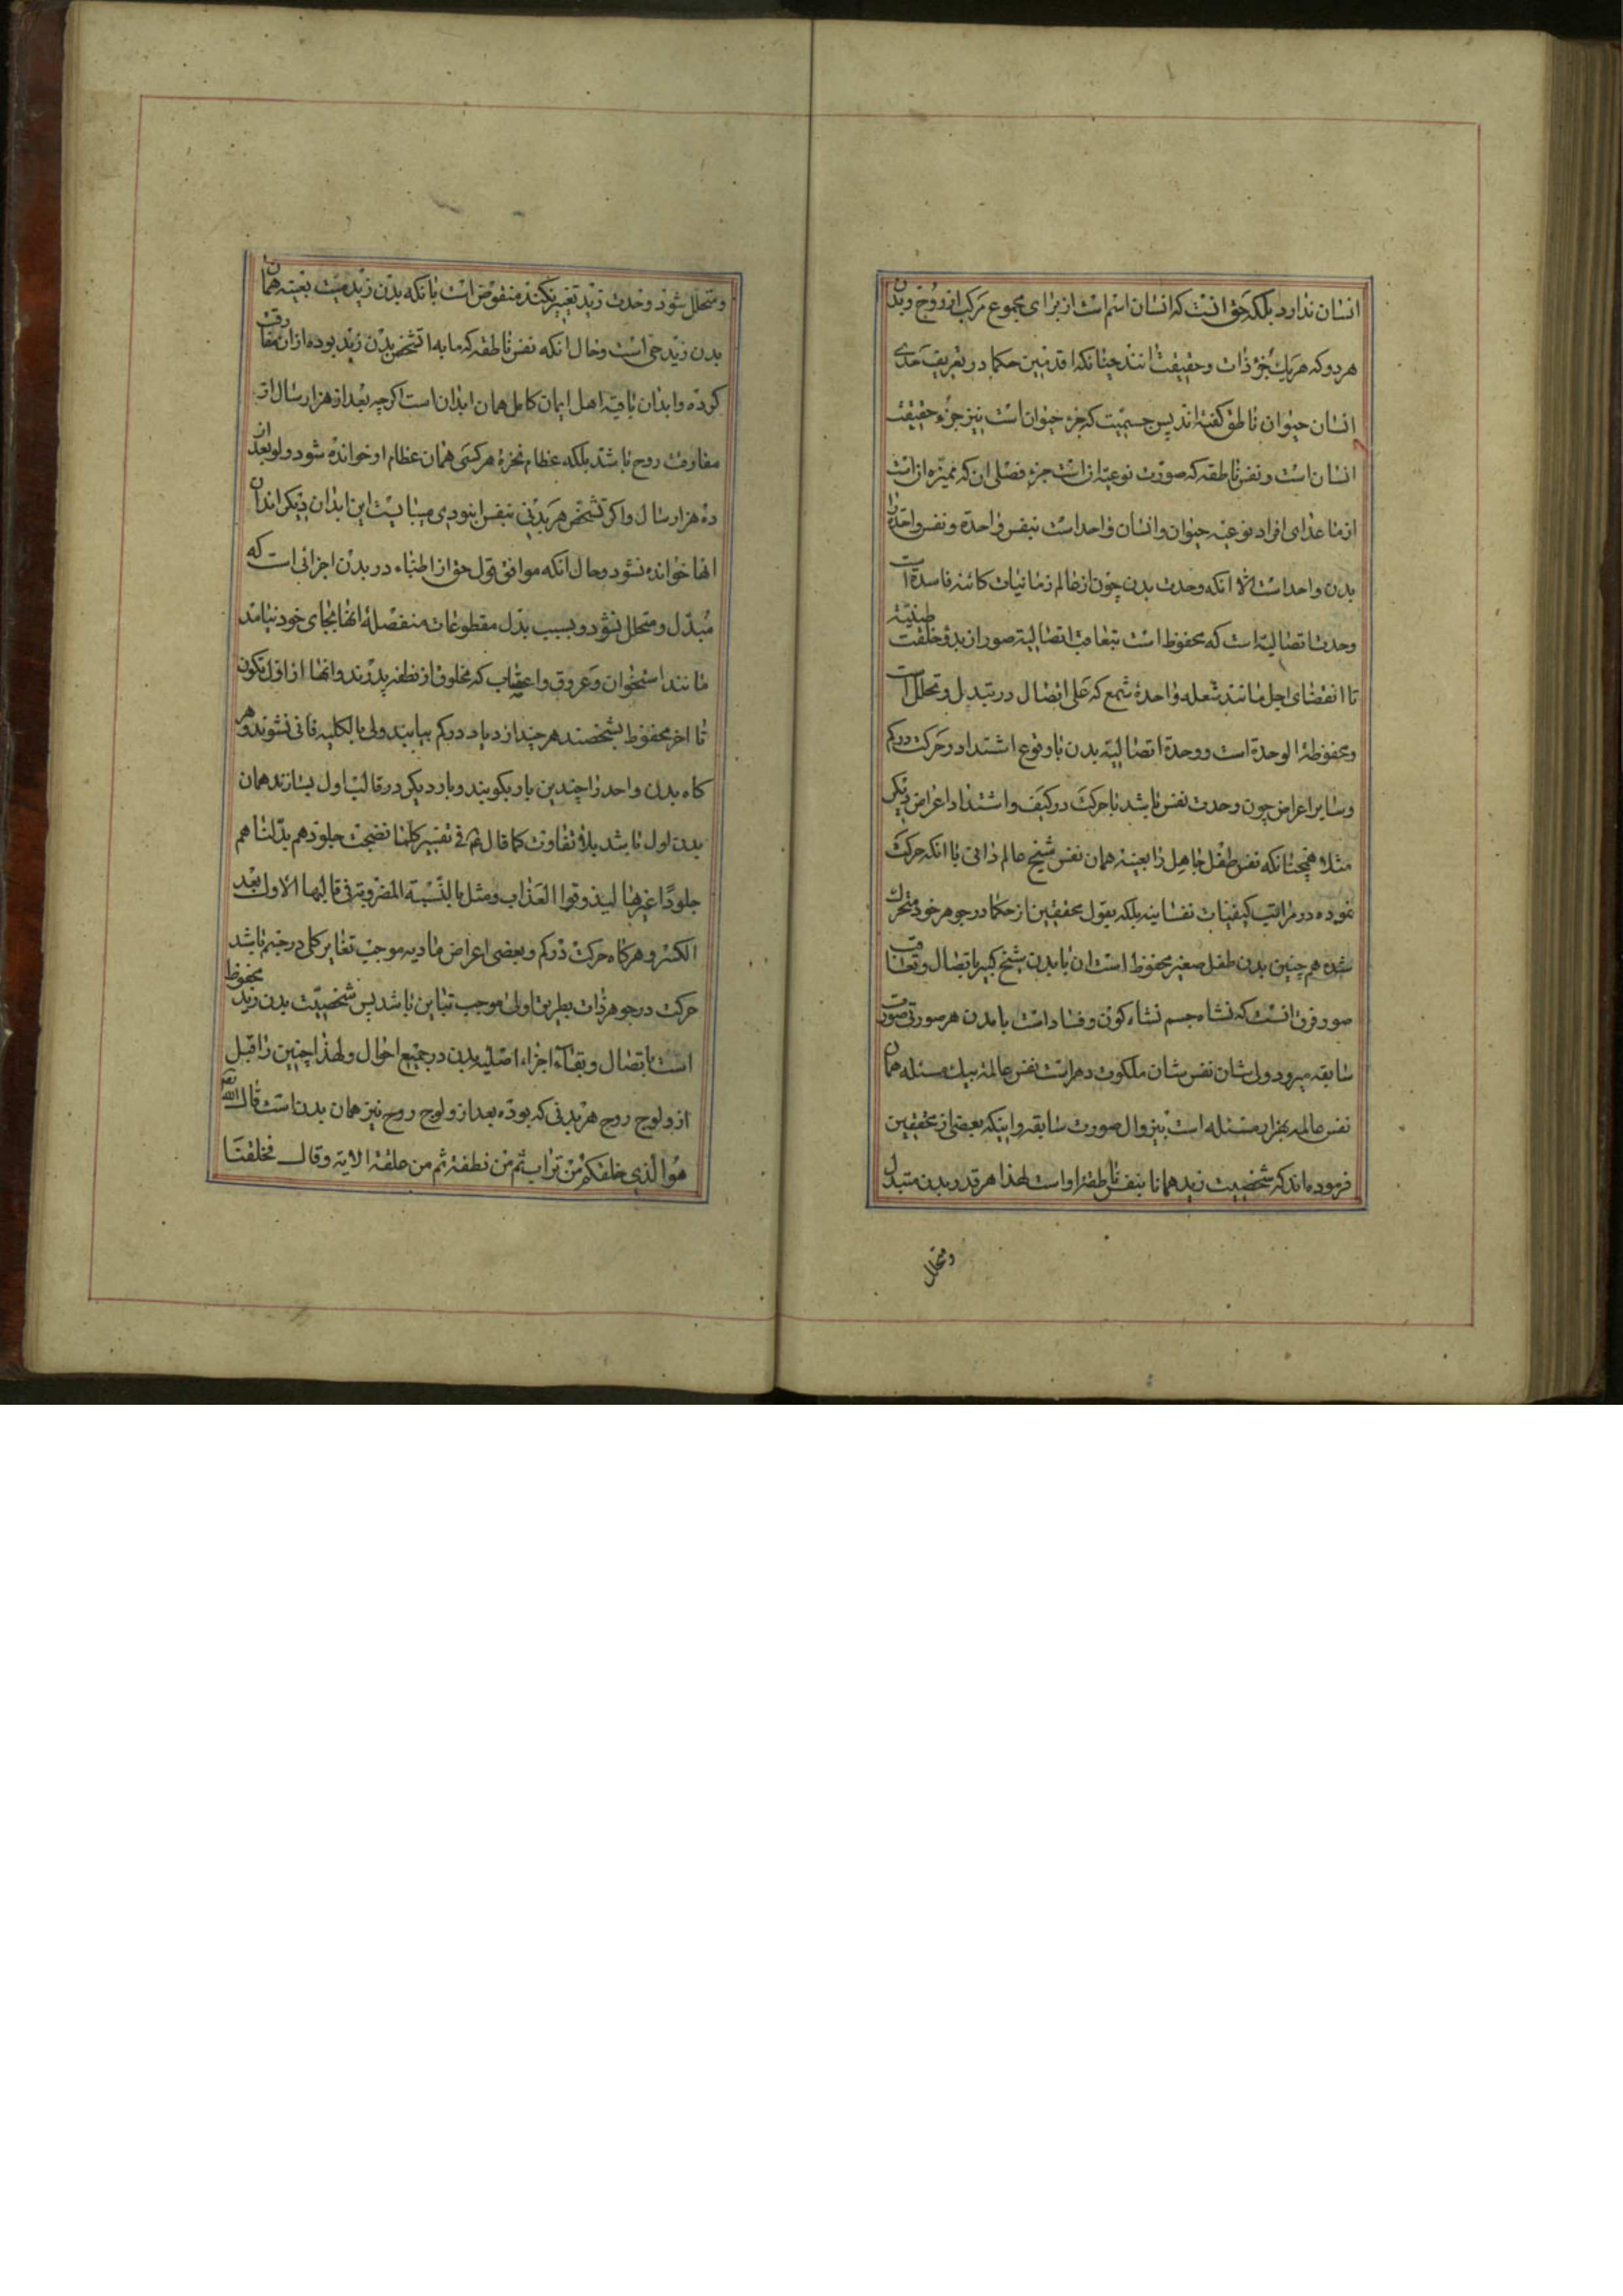 انسان ندارد بلکه حق انست که انسان اسم است از برای مجموع مرکب از روح و بدن
هر دو که هر یک جزء ذات و حقیقت انند چنانکه اقدمین حکما در تعریف حدی
انسان حیوان ناطق کفته اند پس جسمیت که جزء حیوان است نیز جزء حقیقت
انسان است و نفس ناطقه که صورت نوعیه ان است جزء فصلی ان که ممیزه ان است
از ماعدای افراد نوعیه حیوان و انسان واحد است بنفس واحدة و نفس واحده را
بدن واحد است الا انکه وحدت بدن چون از عالم زمانیات کائنه فاسدة است
وحدت اتصالیة است که محفوظ است بتعاقب اتصالیة صور از بدو خلقت طینیّة
تا انقضای اجل مانند شعله واحدۀ شمع که علی اتصال در تبدیل و تحلل است
و محفوظة الوحدة است و وحدة اتصالیة بدن با وقوع اشتداد و حرکت در کم
و سایر اعراض چون وحدت نفس باشد با حرکت در کیف و اشتداد اعراض دیکر
مثلا همچنانکه نفس طفل جاهل را بعینه همان نفس شیخ عالم دانی با انکه حرکت
نموده در مراتب کیفیات نفسانیه بلکه بقول محققین از حکما در جوهر خود متحرک
شده هم چنین بدن طفل صغیر محفوظ است ان با بدن شیخ کبیر باتصال و تعاقب
صور فرق انست که نشاه جسم نشاه کون و فساد است با مدن هر صورتی صورت
سابقه میرود ولی شان نفس شان ملکوت دهر است نفس عالمة بیک مسئله همان
نفس عالمه بهزار مسئله است بیزوال صورت سابقه و اینکه بعضی از محققین
فرموده اند که شخصیت زید همانا بنفس ناطقۀ او است لهذا هر قدر بدن متبدل
و متحلل
و متحلل شود وحدت زید تغییر نکند منقوض است بانکه بدن زید میت بعینه همان
بدن زید حی است و حال انکه نفس ناطقه که مابه تشخص بدن زید بوده از ان مفارقت
کرده و ابدان باقیه اهل ایمان کامل همان ابدان است اکرچه بعد از هزار سال از
مفارقت روح باشد بلکه عظام نخرۀ هر کسی همان عظام او خوانده شود ولو بعد از
ده هزار سال و اکر تشخص هر بدنی بنفس او بودی میبایست این ابدان دیکر ابدان
انها خوانده نشود و حال انکه موافق قول حق از اطباء در بدن اجزائی است که
مبدّل و متحلل نشود و بسبب بدل مقطوعات منفصلۀ انها بجای خود نیامد
مانند استخوان و عروق و اعصاب که مخلوق از نطفه پدرند و انها از اول تکون
تا اخر محفوظ بشخصند هر چند ازدیاد در کم بیابند ولی بالکلیه فانی نشوند و هر
کاه بدن واحد را چندین بار بکوبند و بار دیکر در قالب اول بسازند همان
بدن اول باشد بلا تفاوت کما قال ع فی تفسیر کلما نضجت جلودهم بدّلناهم
جلودًا غیرها لیذوقوا العذاب و مثل باللّبنة المضروبة فی قالبها الاول بعد
الکسر و هرکاه حرکت در کم و بعضی اعراض مادیه موجب تغایر کلی در جسم باشد
حرکت در جوهر ذات بطریق اولی موجب تباین باشد پس شخصیّت بدن زید محفوظ
است باتصال و بقاء اجزاء اصلیه بدن در جمیع احوال و لهذا چنین را قبل
از ولوج روح هر بدنی که بوده بعد از ولوج روح نیز همان بدن است قال الله تعالی
هو الّذی خلقکم من تراب ثم من نطفة ثم من علقة الایة و قال فخلقنا